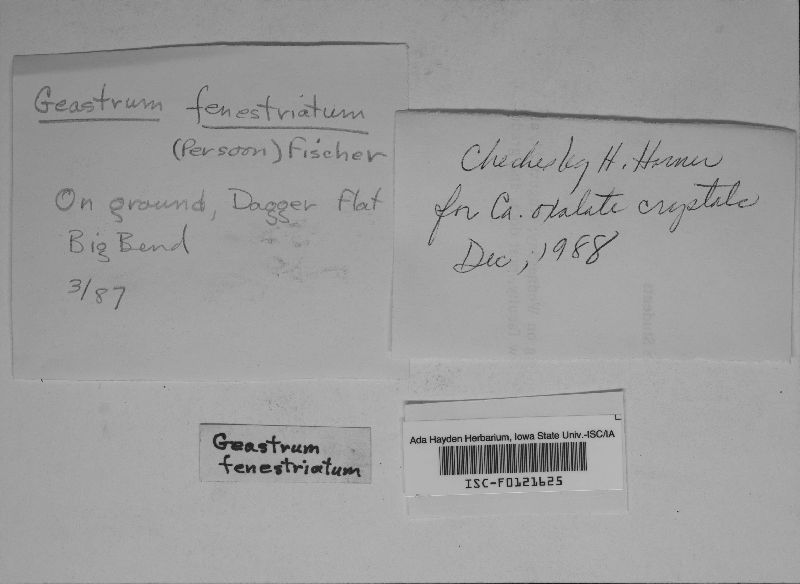 Geastrum fenestriatum
(Persoon) Fischer
On ground, Dagger Flat
Big Bend
3/87
Checked by H. Horner
for Ca. oxalate crystals
Dec, 1988
Geastrum
fenestriatum
Ada Hayden Herbarium, Iowa State Univ.-ISC/IA
ISC-F0121625
Students